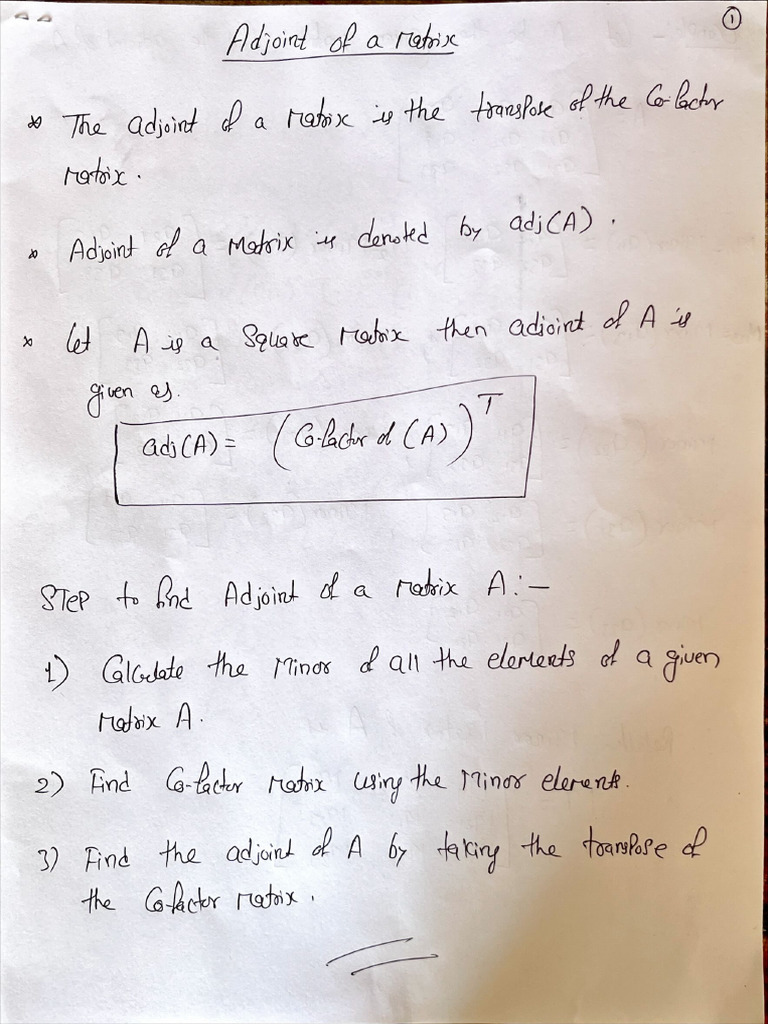 1
Adjoint of a Matrix
* The adjoint of a Matrix is the transpose of the Co-factor
Matrix.
* Adjoint of a Matrix is denoted by adj(A).
* let A is a Square Matrix then adjoint of A is
given as.
adj(A) = (Co-factor of (A))^T
STEP to find Adjoint of a Matrix A:-
1) Calculate the Minor of all the elements of a given
Matrix A.
2) Find Co-factor Matrix using the Minor elements.
3) Find the adjoint of A by taking the transpose of
the Co-factor Matrix.